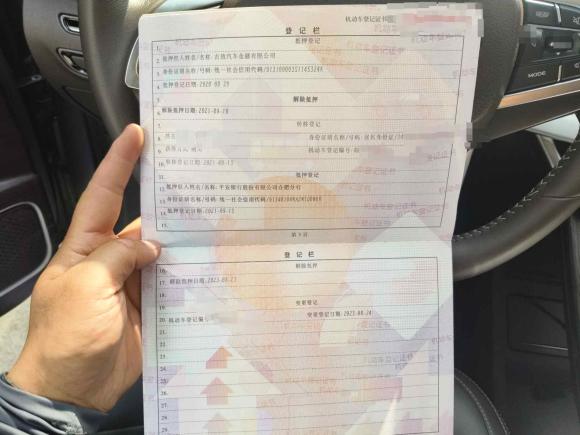 机动车登记证书
登记栏
抵押登记
1.
2. 抵押权人姓名/名称:吉致汽车金融有限公司
3. 身份证明名称/号码:统一社会信用代码/
4. 抵押登记日期:2020-09-29
5. 解除抵押
6. 解除抵押日期:2021-09-10
7. 转移登记
8. 身份证明名称/号码:居民身份证/34
9. 机动车登记编号:皖
10. 转移登记日期:2021-09-15
11. 抵押登记
12. 抵押权人姓名/名称:平安银行股份有限公司合肥分行
13. 身份证明名称/号码:统一社会信用代码/
14. 抵押登记日期:2021-09-15
15.
第3页
登记栏
16. 解除抵押
17. 解除抵押日期:2023-08-23
18.
19. 变更登记
20. 机动车登记编号 变更登记日期:2023-08-24
21.
22.
23.
24.
25.
26.
27.
28.
29.
MODE